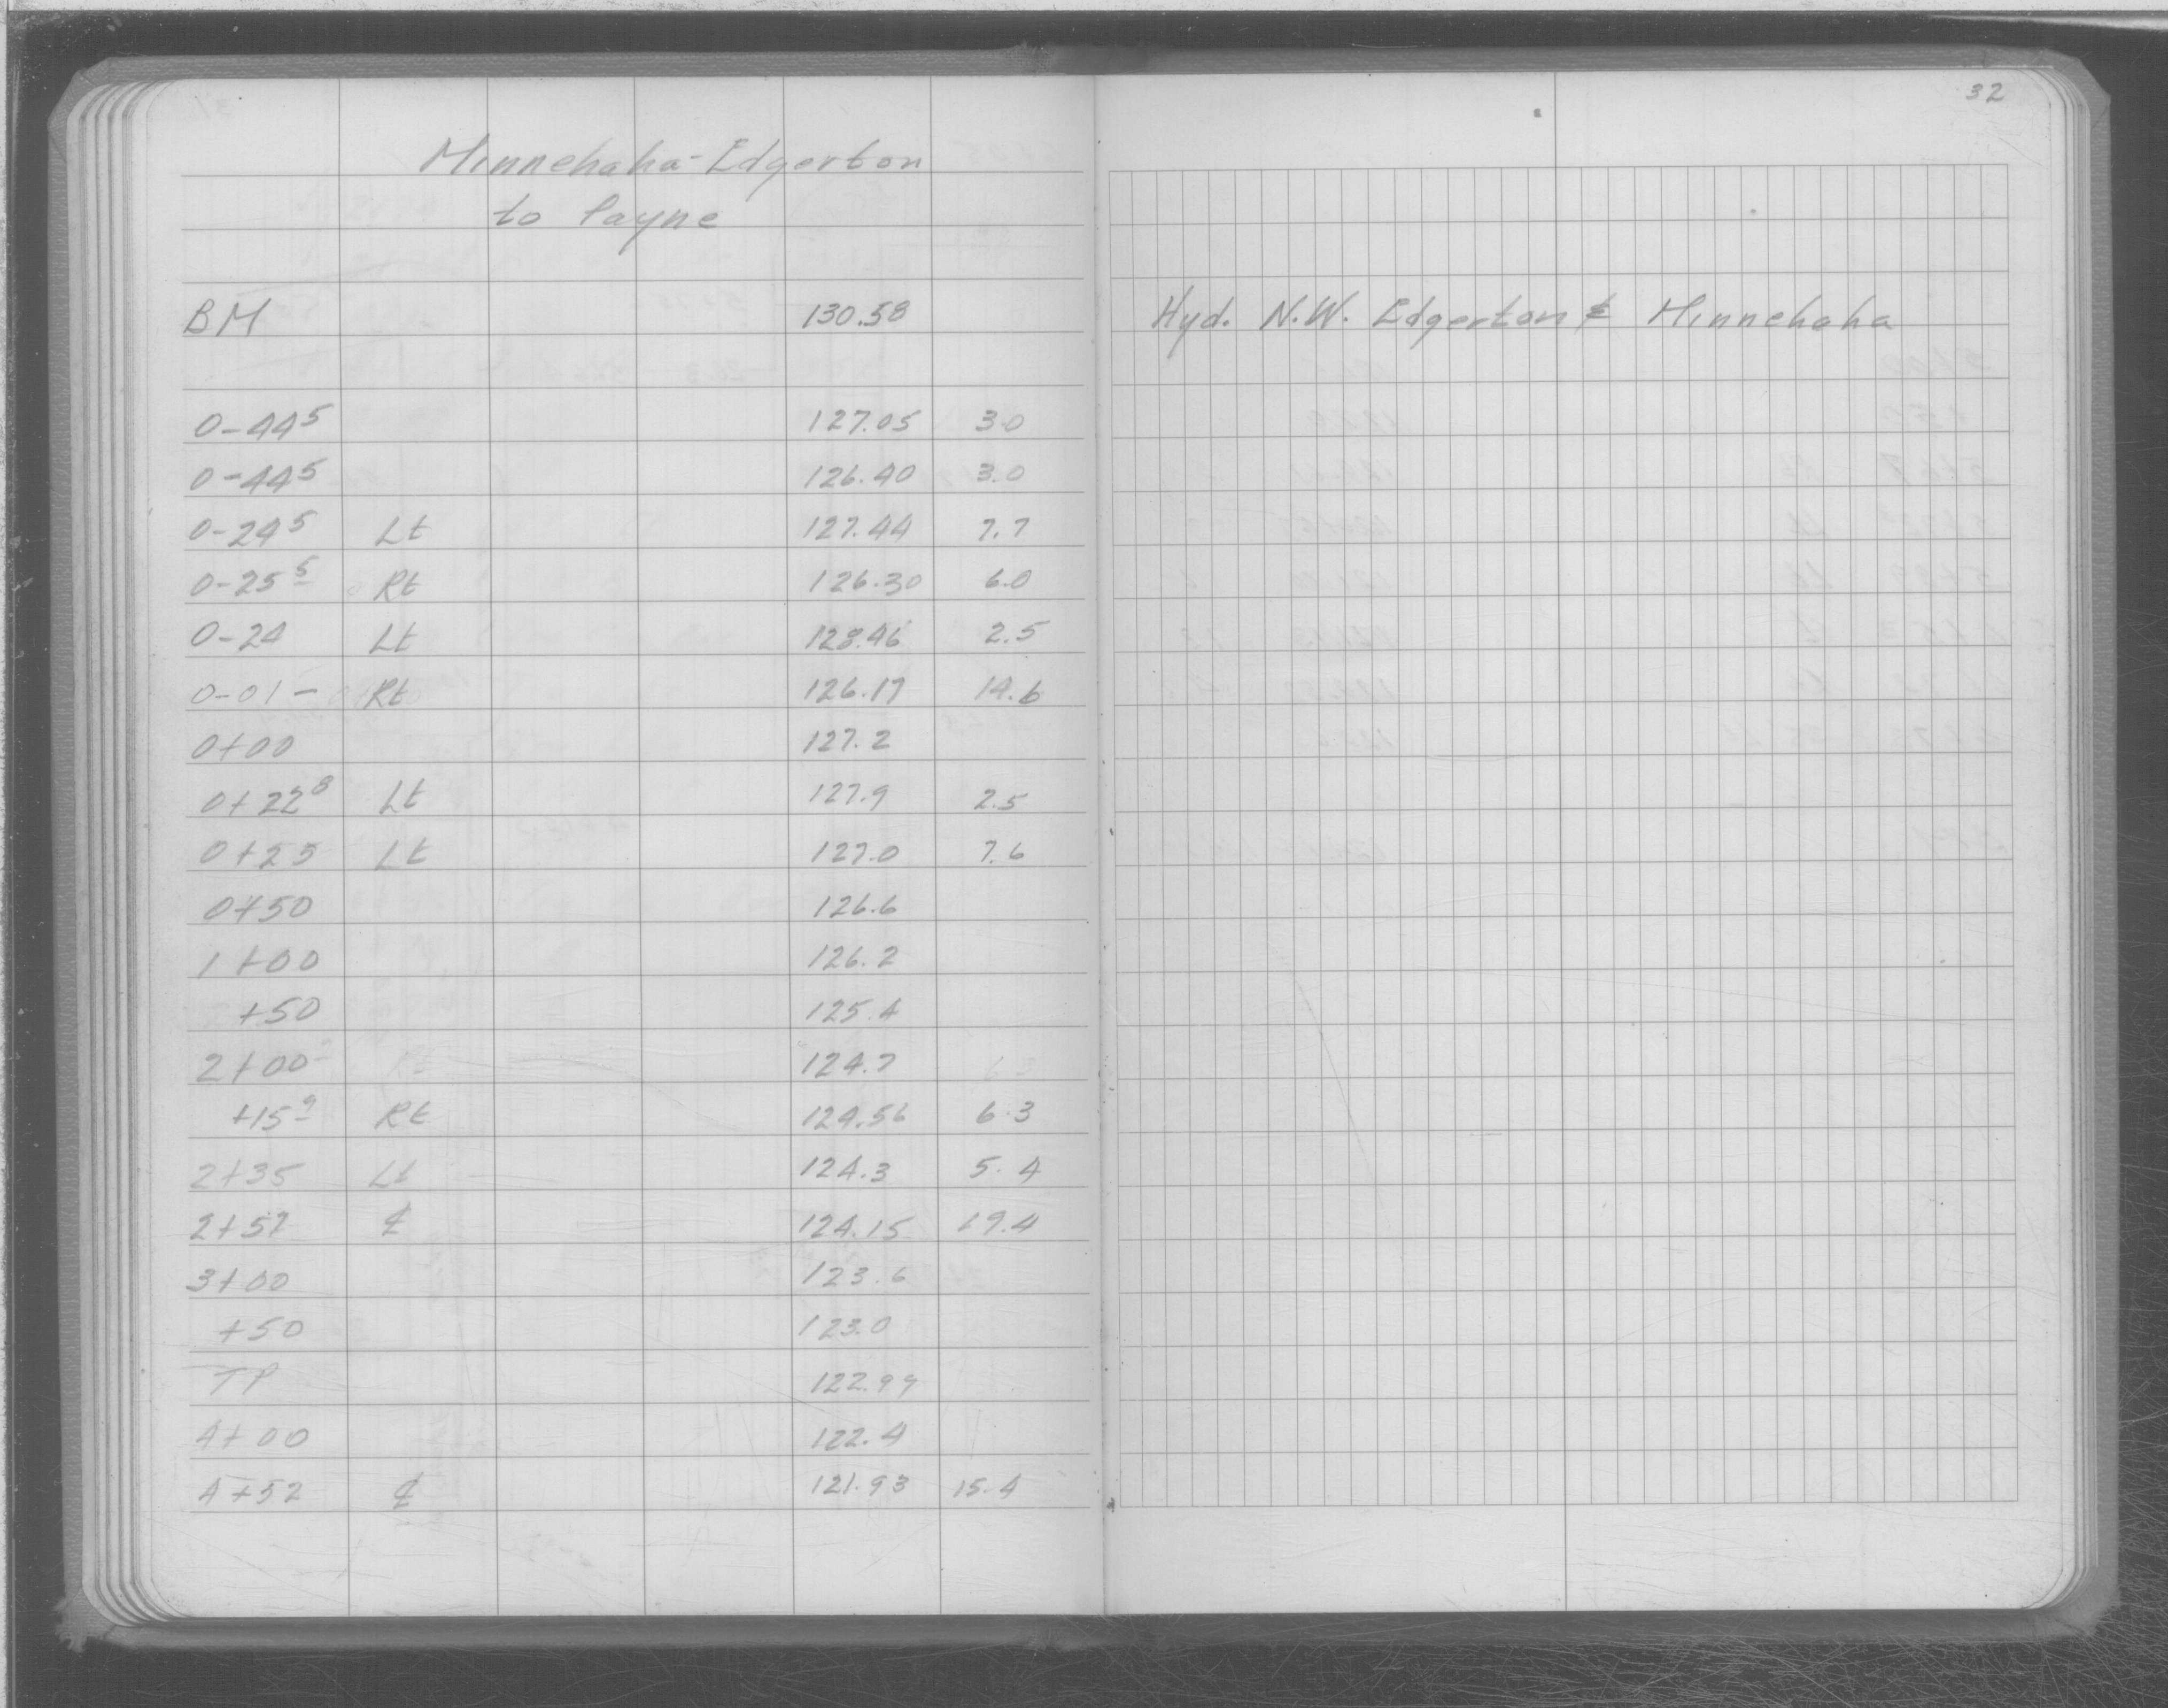 32
Minnehaha-Edgerton
to Payne
BM 130.58 Hyd. N.W. Edgerton & Minnehaha
0-44⁵ 127.05 3.0
0-44⁵ 126.40 3.0
0-24⁵ Lt 127.44 7.7
0-25⁵ Rt 126.30 6.0
0-24 Lt 128.46 2.5
0-01- Rt 126.17 14.6
0+00 127.2
0+22⁸ Lt 127.9 2.5
0+25 Lt 127.0 7.6
0+50 126.6
1+00 126.2
+50 125.4
2+00 124.7
+15⁹ Rt 124.56 6.3
2+35 Lt 124.3 5.4
2+57 ℄ 124.15 19.4
3+00 123.6
+50 123.0
TP 122.99
4+00 122.4
4+52 ℄ 121.93 15.4